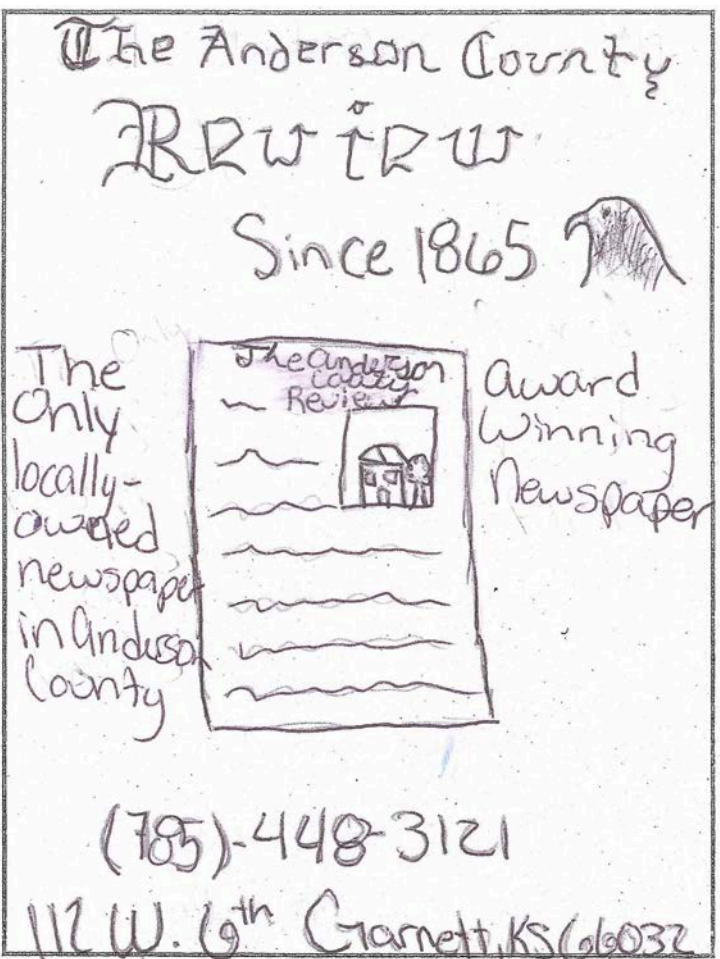 The Anderson County
Review
Since 1865
The
Only
locally-
owned
newspaper
in Anderson
County
The Anderson
County
Review
award
Winning
Newspaper
(785)-448-3121
112 W. 6th Garnett, KS 66032